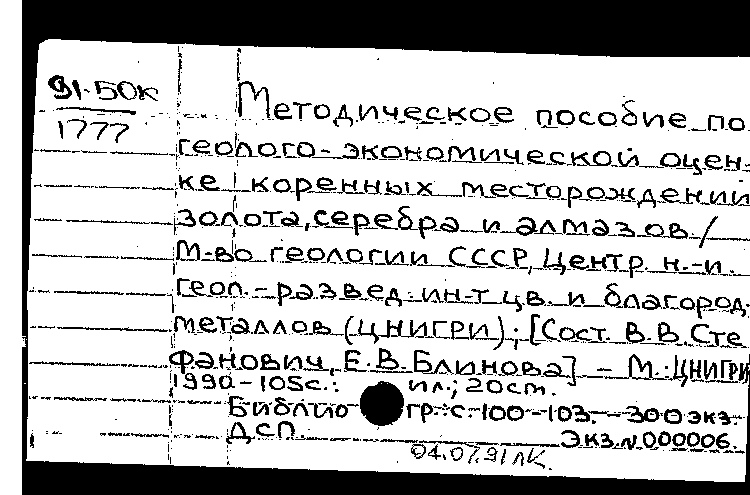 91-50к
1777
Методическое пособие по
геолого-экономической оцен-
ке коренных месторождений
золота, серебра и алмазов /
М-во геологии СССР, Центр. н.-и.
геол.-развед. ин-т цв. и благород.
металлов (ЦНИГРИ); [Сост. В.В. Сте
фанович, Е.В. Блинова] - М.: ЦНИГРИ
1990 - 105с.: ил.; 20см.
Библио гр.: с. 100-103. - 300 экз.
ДСП. Экз. N 000006.
04.07.91 ЛК.